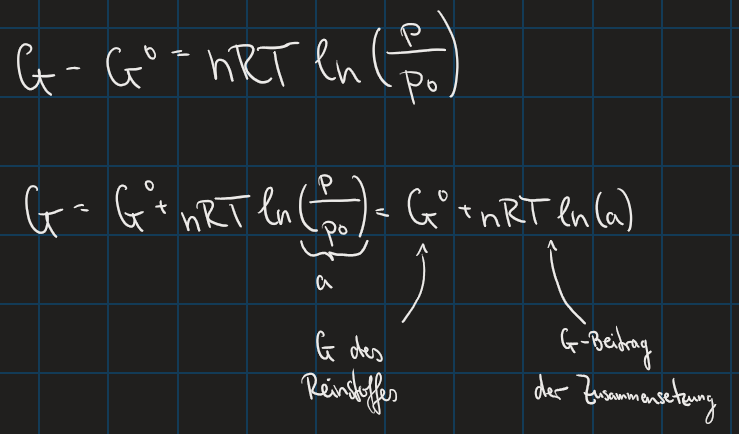 G - G° = nRT ln(p/p₀)
G = G° + nRT ln(p/p₀) = G° + nRT ln(a)
a
G des
Reinstoffes
G-Beitrag
der Zusammensetzung